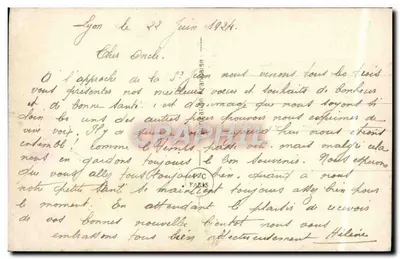 Lyon le 22 Juin 1924.
Cher Oncle.
A l'approche de la St Jean nous venons tous les trois
vous présenter nos meilleurs vœux et souhaits de bonheur
et de bonne santé; est dommage que nous soyont si
loin les uns des autres pour pouvoir nous exprimer de
vive voix. Il y a hier nous étions
ensemble! comme le temps passe vite mais malgré cela
nous en gardons toujours le bon souvenir. Nous espérons
que vous allez tous toujours bien, quand à nous
notre petite santé se maintient toujours assez bien pour
le moment. En attendant le plaisir de recevoir
de vos bonnes nouvelles bientôt nous vous
embrassons tous bien affectueusement Hélène